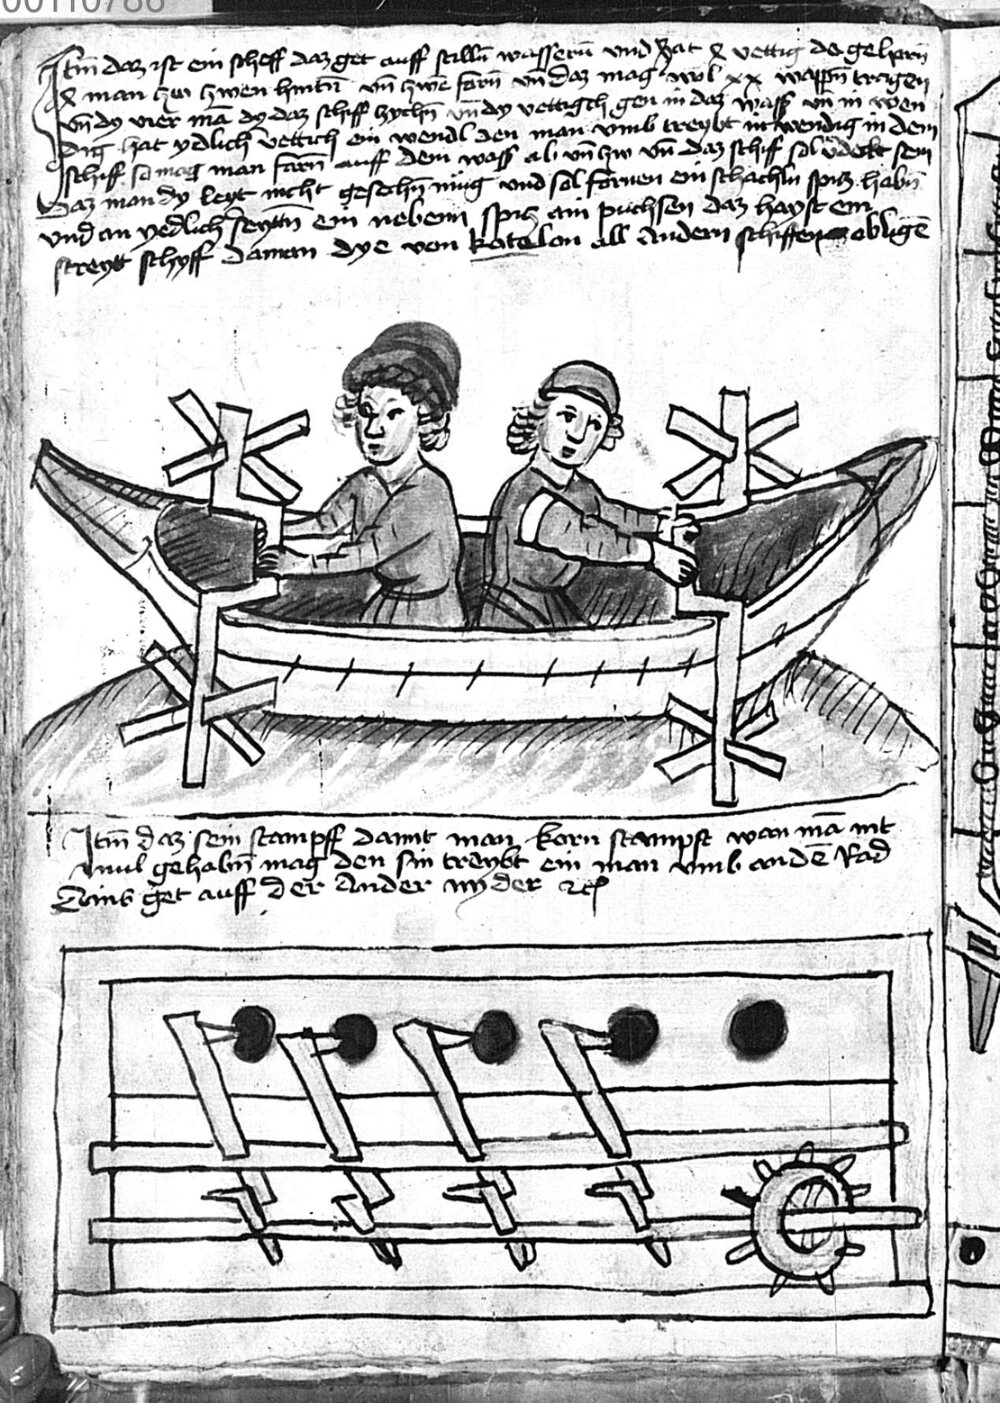 00110786
Itm daz ist ein scheff daz get auff stilln wassern und hat
man zw zwen hintn vn zwe forn vn daz mag wol xx wappn tragen
vn dy vier ma dy daz schiff zychn vn dy vettigch gen in daz wass vn in
dig hat ydlich vettich ein wendl den man vmb treybt inwendig in dem
schiff so mag man farn auff dem wass ab vn zw vn daz schif sol sein
daz man dy leyt nicht gesechn mug vnd sol fornen ein spicz habn
vnd an yedlich seyttn ein nebenn spicz ain puchsen daz hayst ein
streytt schyff daman dye von katelon all andern schiffen obligen
Itm daz sein stampff damit man korn stampft wan ma nit
mul gehabn mag den sin treybt ein man vmb an de Rad
Ains get auff der Ander nyder